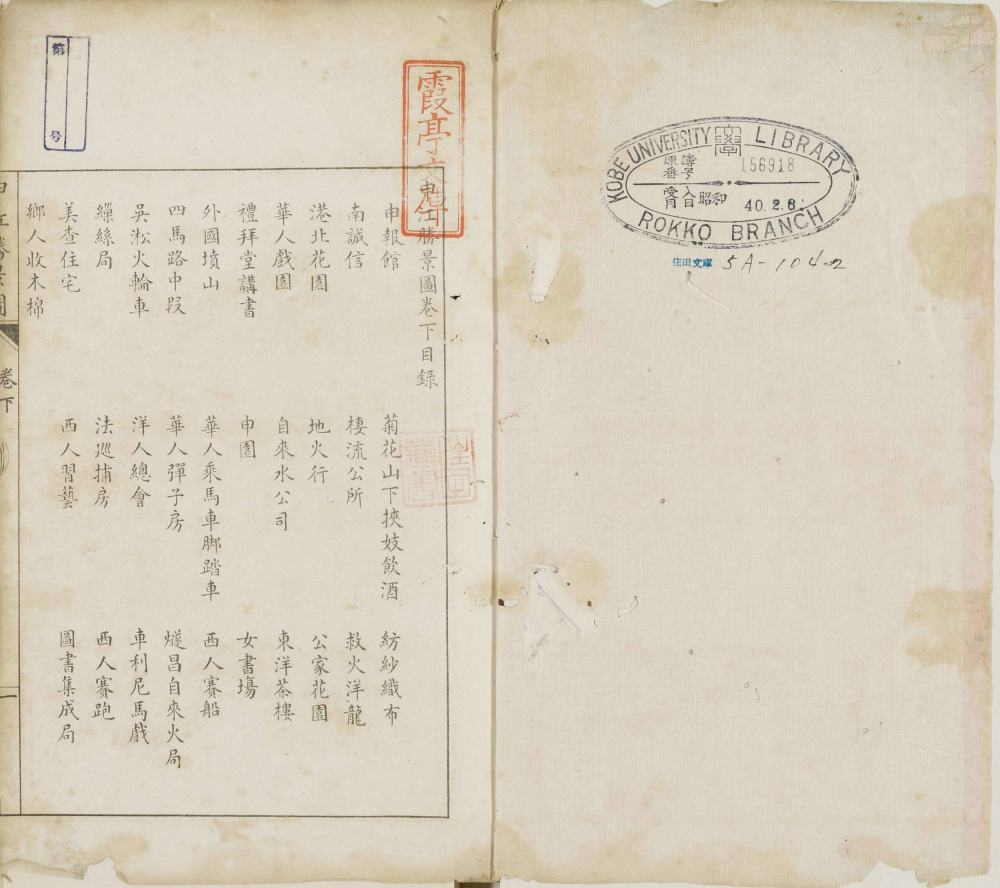 KOBE UNIVERSITY LIBRARY
156918
昭和 40.2.8.
ROKKO BRANCH
住田文庫 5A-104-2
第
号
霞亭文庫
申江勝景圖卷下目錄
申報館 菊花山下挾妓飲酒 紡紗織布
南誠信 棲流公所 救火洋龍
港北花園 地火行 公家花園
華人戲園 自來水公司 東洋茶樓
禮拜堂講書 申園 女書塲
外國墳山 華人乘馬車脚踏車 西人賽船
四馬路中段 華人彈子房 燧昌自來火局
吳淞火輪車 洋人總會 車利尼馬戲
繅絲局 法廵捕房 西人賽跑
美查住宅 西人習藝 圖書集成局
鄉人收木棉
卷下
一